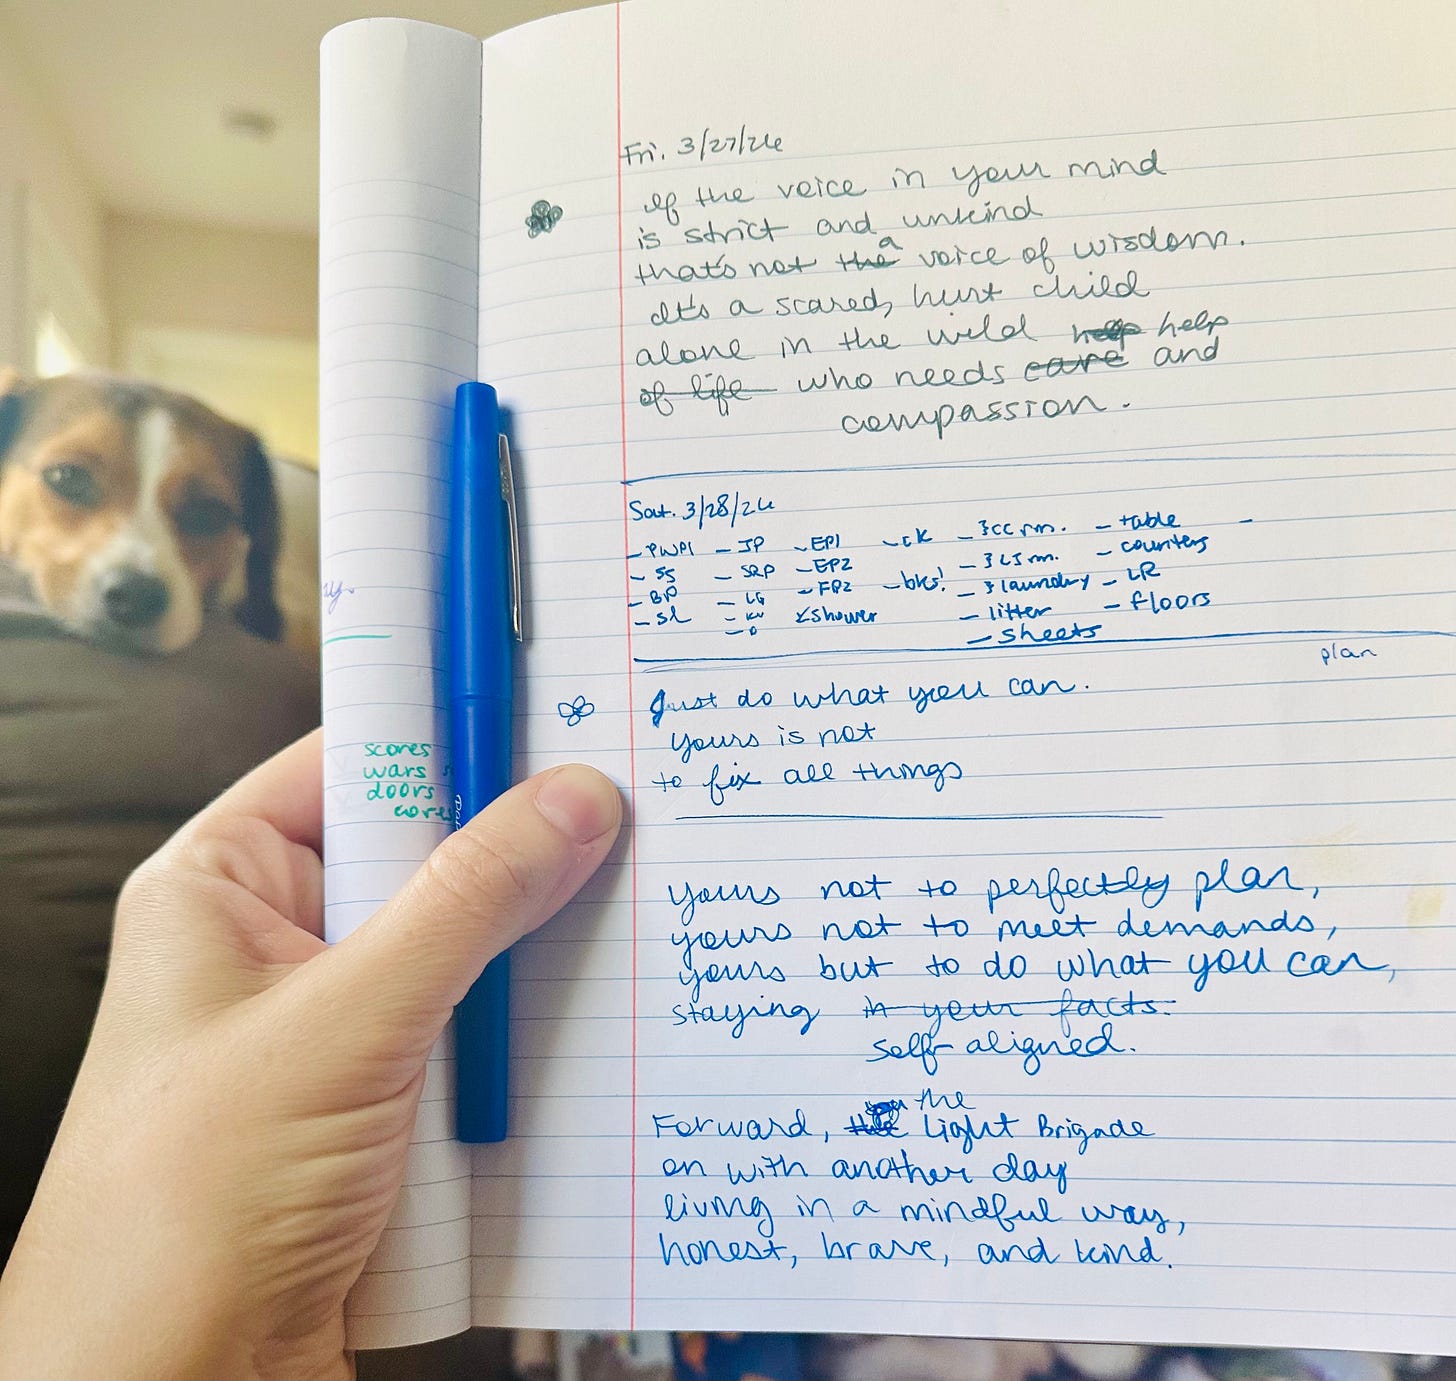 Fri. 3/27/26
If the voice in your mind
is strict and unkind
that's not the a voice of wisdom.
It's a scared, hurt child
alone in the wild
of life who needs care help and
compassion.
Sat. 3/28/26
- PWP1 - JP - EP1 - ck - 3 cc rm. - table -
- SS - SRP - EP2 - 3 LS rm. - counters
- BP - LG - FP2 - bks! - 3 laundry - LR
- SL shower - litter - floors
- sheets
plan
Just do what you can.
Yours is not
to fix all things
yours not to perfectly plan,
yours not to meet demands,
yours but to do what you can,
staying in your facts.
self-aligned.
Forward, the Light Brigade
on with another day
living in a mindful way,
honest, brave, and kind.
scores
wars
doors